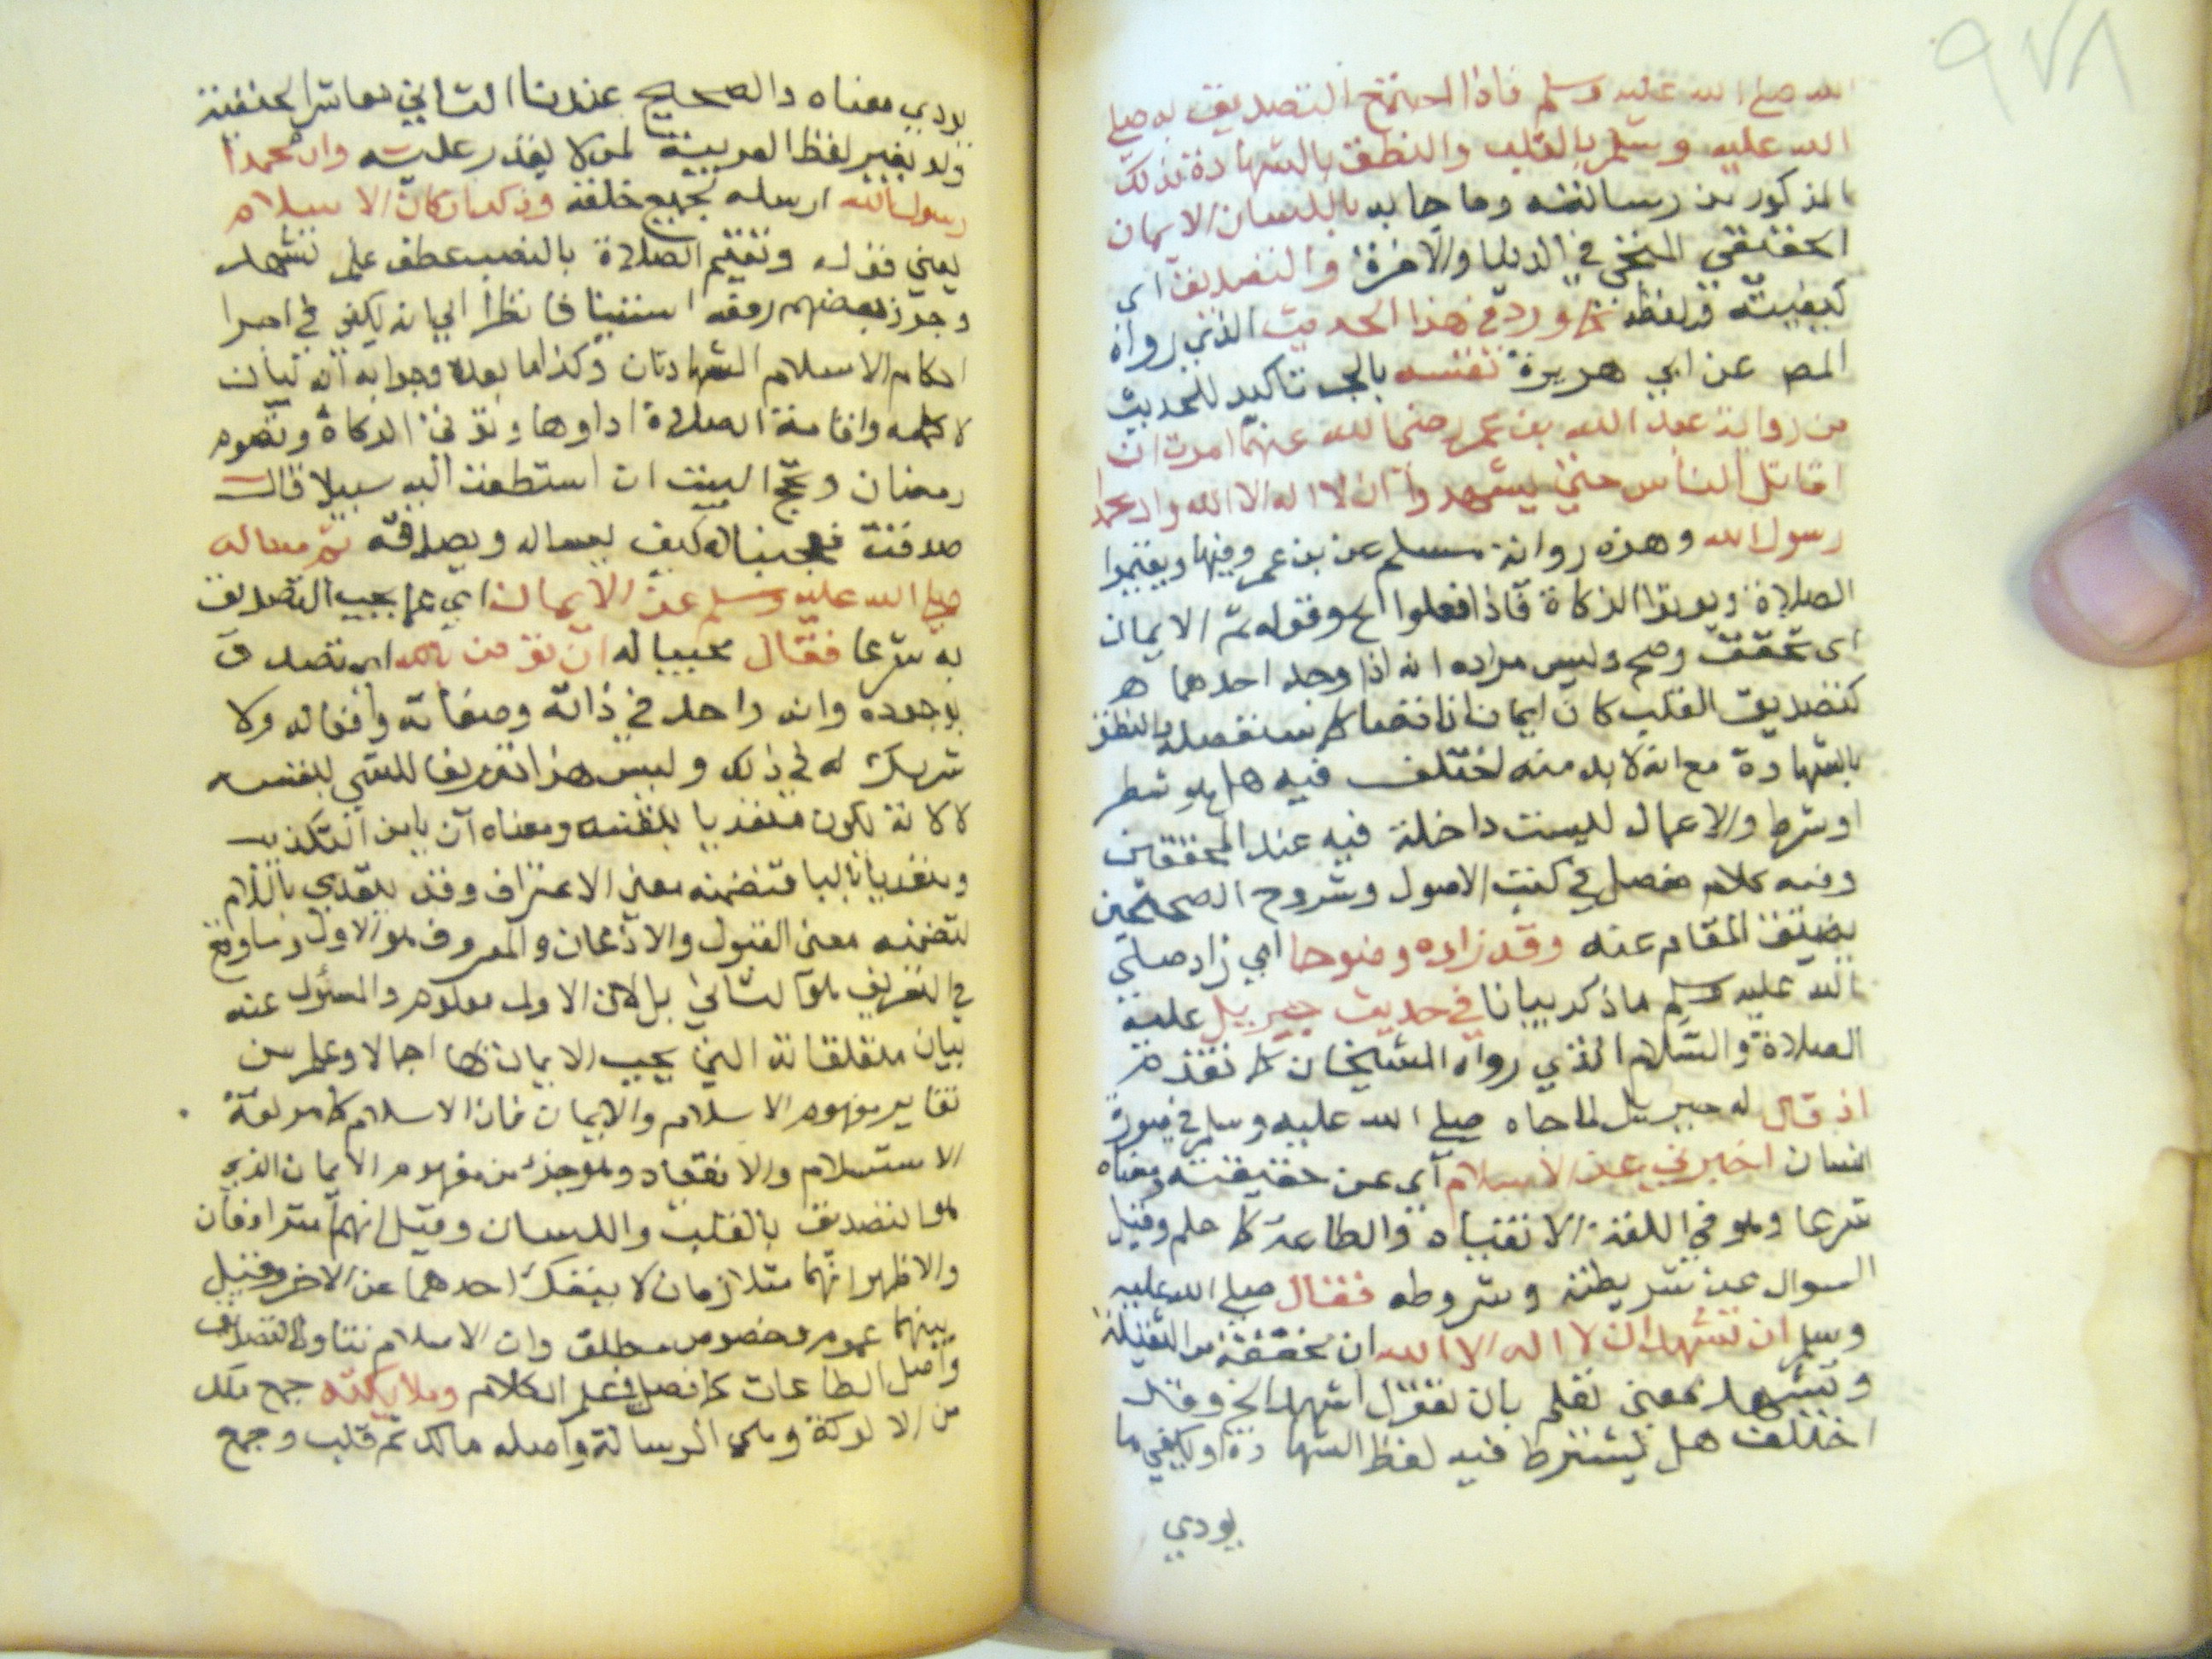 ٩٧٨
الله صلى الله عليه وسلم فاذا اجتمع التصديق به صلى
الله عليه وسلم بالقلب والنطق بالشهادة بذلك
المذكور من رسالته وما جا به باللسان الايمان
الحقيقي المنجي في الدنيا والاخرة والتصديق اي
كيفيته ولفظه كما ورد في هذا الحديث الذي رواه
المص عن ابي هريرة نفسه بالجر تاكيد للحديث
من رواية عبد الله بن عمر رضي الله عنهما امرت ان
اقاتل الناس حتى يشهدوا ان لا اله الا الله وان محمدا
رسول الله وهذه رواية مسلم عن بن عمر وفيها ويقيموا
الصلاة ويوتوا الزكاة فاذا فعلوا الخ وقوله تم الايمان
اي تحقق وصح وليس مراده انه اذا وجد احدهما هر
كتصديق القلب كان ايمانا ناقصا كما سنفصله والنطق
بالشهادة مع انه لا بد منه اختلف فيه هل هو شطر
او شرط والاعمال ليست داخلة فيه عند المحققين
وفيه كلام مفصل في كتب الاصول وشروح الصحيحين
يضيق المقام عنه وقد زاده وضوحا اي زاد صلى
الله عليه وسلم ما ذكر بيانا في حديث جبريل عليه
الصلاة والسلام الذي رواه الشيخان كما تقدم
اذ قال له جبريل لما جاه صلى الله عليه وسلم في صورة
انسان اخبرني عن الاسلام اي عن حقيقته ومعناه
شرعا وهو في اللغة الانقياد والطاعة كما علم وقيل
السوال عن شريطته وشروطه فقال صلى الله عليه
وسلم ان تشهد ان لا اله الا الله ان مخففة من الثقيلة
وتشهد بمعنى تعلم بان تقول اشهد الخ وقد
اختلف هل يشترط فيه لفظ الشهادة او يكفي ما
يودي
يودي معناه والصحيح عندنا الثاني معاشر الحنفية
ولو بغير لفظ العربية لمن لا يقدر عليه وان محمدا
رسول الله ارسله لجميع خلقه وذكر اركان الاسلام
يعني قوله وتقيم الصلاة بالنصب عطف على تشهد
وجوز بعضهم رفعه استينافا نظرا الى انه يكفي في اجرا
احكام الاسلام الشهادتان وكذا ما بعده وجوابه انه بيان
لاكمله واقامة الصلاة اداوها وتوتي الزكاة وتصوم
رمضان وتحج البيت ان استطعت اليه سبيلا قال
صدقت فعجبنا له كيف يساله ويصدقه ثم ساله
صلى الله عليه وسلم عن الايمان اي عما يجب التصديق
به شرعا فقال مجيبا له ان تومن بالله اي تصدق
بوجوده وانه واحد في ذاته وصفاته وافعاله ولا
شريك له في ذلك وليس هذا تعريفا للشي بنفسه
لانه يكون متعديا بنفسه ومعناه ان يامن التكذيب
ويتعدى بالبا فتضمنه معنى الاعتراف وقد يتعدى باللام
لتضمنه معنى القبول والاذعان والمعروف هو الاول وساوقع
في التعريف هو الثاني بل لان الاول معلوم والمسئول عنه
بيان متعلقاته التي يجب الايمان بها اجمالا وعلم من
تغاير مفهوم الاسلام والايمان فان الاسلام كما مر لغة
الاستسلام والانقياد وهو جزء من مفهوم الايمان الذي
هو التصديق بالقلب واللسان وقيل انهما مترادفان
والاظهر انهما متلازمان لا ينفك احدهما عن الاخر وقيل
بينهما عموم وخصوص مطلق وان الاسلام يتناول التصديق
واصل الطاعات كما فصل في علم الكلام وملايكته جمع ملك
من الالوكة وهي الرسالة واصله مالك ثم قلب وجمع